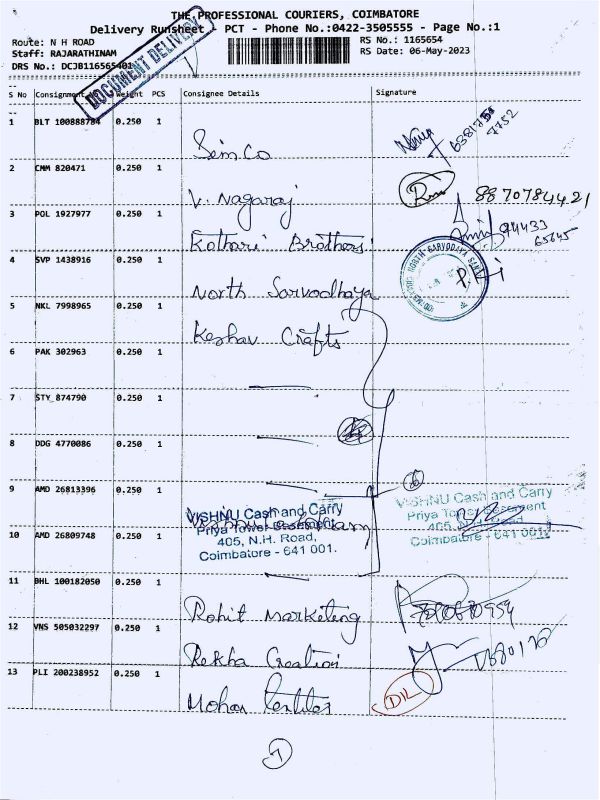 THE PROFESSIONAL COURIERS, COIMBATORE
Delivery Runsheet - PCT - Phone No.:0422-3505555 - Page No.:1
Route: N H ROAD
RS No.: 1165654
Staff: RAJARATHINAM
RS Date: 06-May-2023
DRS No.: DCJB116565401
DOCUMENT DELIVERY
S No Consignment No Weight PCS Consignee Details Signature
1 BLT 100888784 0.250 1
Simco
2 CMM 820471 0.250 1
V. Nagaraj
8870784421
3 POL 1927977 0.250 1
Kothari Brothers
94433
65645
4 SVP 1438916 0.250 1
North Sarvodhaya
NORTH SARVODAYA SANGH
5 NKL 7998965 0.250 1
Keshav Crafts
6 PAK 302963 0.250 1
7 STY 874790 0.250 1
8 DDG 4770086 0.250 1
9 AMD 26813396 0.250 1
VISHNU Cash and Carry
Priya Tower Basement
405, N.H. Road,
Coimbatore - 641 001.
VISHNU Cash and Carry
Priya Tower Basement
405, N.H. Road
Coimbatore - 641 001.
10 AMD 26809748 0.250 1
11 BHL 100182050 0.250 1
Rohit Marketing
12 VNS 505032297 0.250 1
Rekha Creation
13 PLI 200238952 0.250 1
Mohan Textiles